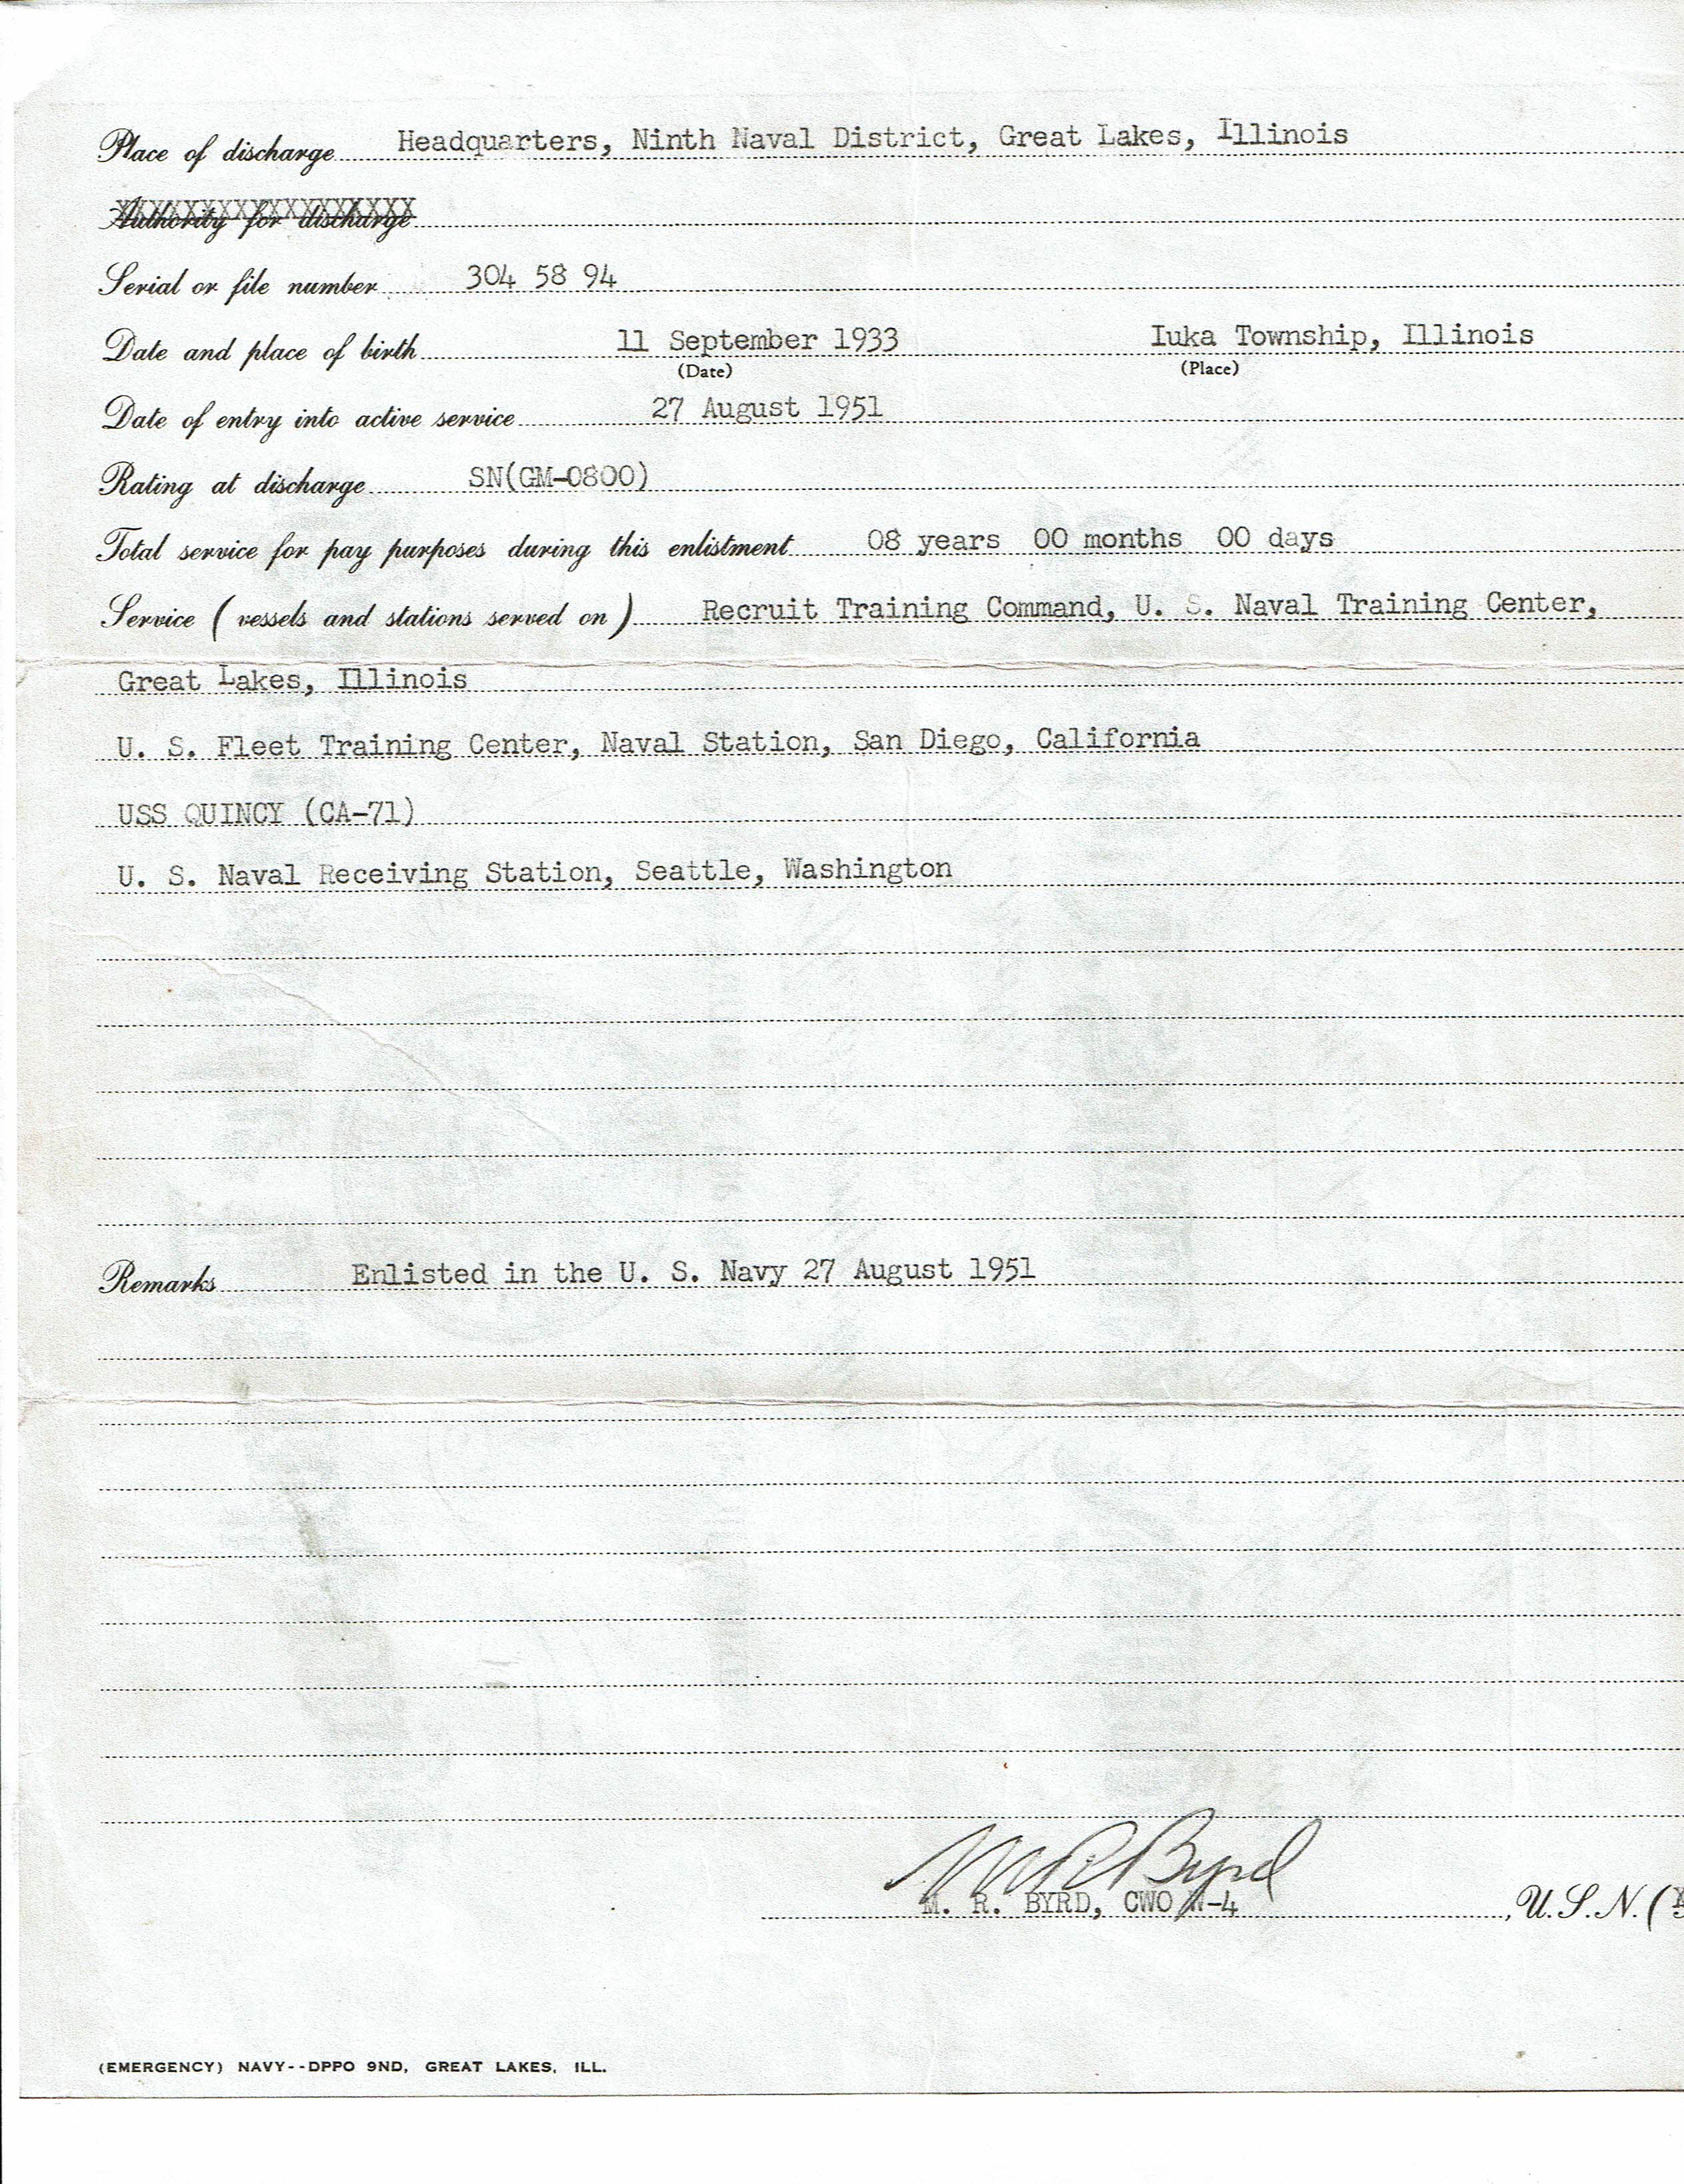 Place of discharge Headquarters, Ninth Naval District, Great Lakes, Illinois
XXXXXXXXXXXXXXXXXX
Authority for discharge
Serial or file number 304 58 94
Date and place of birth 11 September 1933 Iuka Township, Illinois
(Date) (Place)
Date of entry into active service 27 August 1951
Rating at discharge SN(GM-0800)
Total service for pay purposes during this enlistment 08 years 00 months 00 days
Service (vessels and stations served on) Recruit Training Command, U. S. Naval Training Center,
Great Lakes, Illinois
U. S. Fleet Training Center, Naval Station, San Diego, California
USS QUINCY (CA-71)
U. S. Naval Receiving Station, Seattle, Washington
Remarks Enlisted in the U. S. Navy 27 August 1951
M R Byrd
M. R. BYRD, CWO W-4 , U.S.N. (
(EMERGENCY) NAVY--DPPO 9ND, GREAT LAKES, ILL.